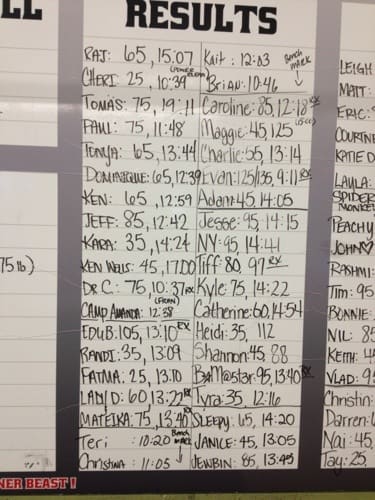 LL
RESULTS
RAJ: 65, 15:07
CHERI: 25, 10:39
TOMAS: 75, 19:11
PAUL: 75, 11:48
TONJA: 65, 13:44
DOMINIQUE: 65, 12:39
KEN: 65, 12:59
JEFF: 85, 12:42
KARA: 35, 14:24
KEN WELLS: 45, 17:00
DR C: 75, 10:37 RX
(FRAN)
CAMP AMANDA: 12:38
EDUB: 105, 13:10 RX
RANDI: 35, 13:09
FATMA: 25, 13:10
LADY D: 60, 13:22 RX
MATEIKA: 75, 13:40 RX
Teri : 10:20 Bench mark
Christina : 11:05
Kait : 12:03 Bench mark
Brian: 10:46
Caroline: 85, 12:18 RX
Maggie: 45, 125
Charlie: 55, 13:14
Evan: 125/135, 9:11 RX
Adam: 45, 14:05
Jesse: 95, 14:15
NY: 95, 14:41
Tiff: 80, 97 RX
Kyle: 75, 14:22
Catherine: 60, 14:54
Heidi: 35, 112
Shannon: 45, 88
BAM@star: 95, 13:40 RX
Tyra: 35, 12:16
SLEEPY: 65, 14:20
JANICE: 45, 13:05
JEWBIN: 85, 13:45
LEIGH
MATT:
ERIC:
COURTNE
KATIE D
LAYLA:
SPIDER
MONKEY
PEACHY
JOHN
RASHMI:
Tim: 95
BONNIE:
NIL: 85
KEITH: 44
VLAD: 95
Christin:
Darren: 6
Nai: 45,
Tay: 25,
75 lb)
NER BEAST!